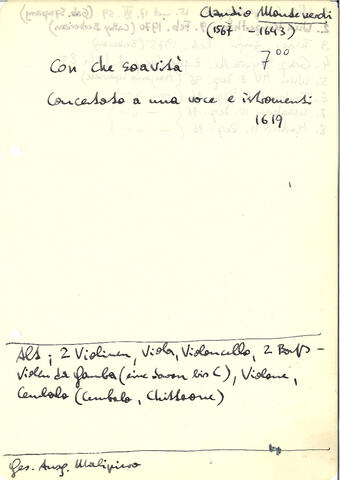 Claudio Monteverdi
(1567 1643)
7 00
Con che soavità
Concertato a una voce e istromenti
1619
Alt ; 2 Violinen, Viola, Violoncello, 2 Baß-
violen da gamba (eine davon bis C), Violone,
Cembalo (Cembalo, Chitarrone)
Ges. Ausg. Malipiero